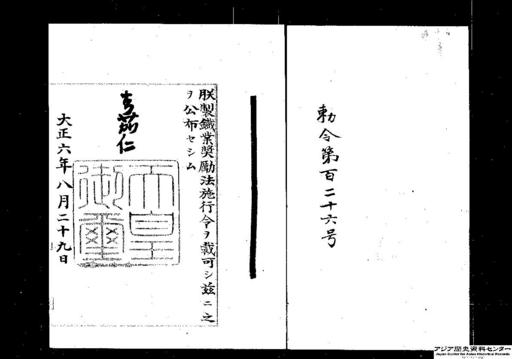 勅令第百二十六号
朕製鐵業奨勵法施行令ヲ裁可シ茲ニ之
ヲ公布セシム
嘉仁
天皇御璽
大正六年八月二十九日
アジア歴史資料センター
Japan Center for Asian Historical Records